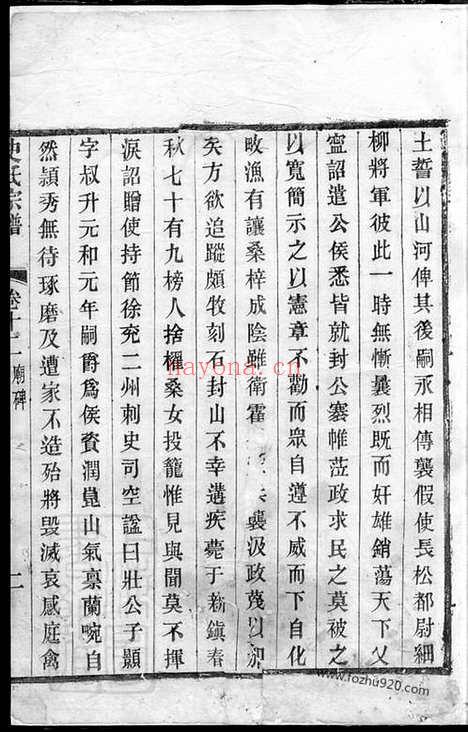 土誓以山河俾其後嗣永相傳襲假使長松都尉細
柳將軍彼此一時無慚曩烈既而奸雄銷蕩天下乂
寧詔遣公侯悉皆就封公褰帷蒞政求民之莫被之
以寬簡示之以憲章不勸而眾自遵不威而下自化
畋漁有讓桑梓成陰雖衛霍襄汲政蔑以加
矣方欲追蹤頗牧刻石封山不幸遘疾薨于新鎮春
秋七十有九榜人捨櫂桑女投籠惟見與聞莫不揮
淚詔贈使持節徐兖二州刺史司空諡曰壯公子顥
字叔升元和元年嗣爵為侯資潤崑山氣稟蘭畹自
然頴秀無待琢磨及遭家不造殆將毀滅哀感庭禽
史氏宗譜
卷十二 廟碑
二
nayona.cn
www.fozhu920.com